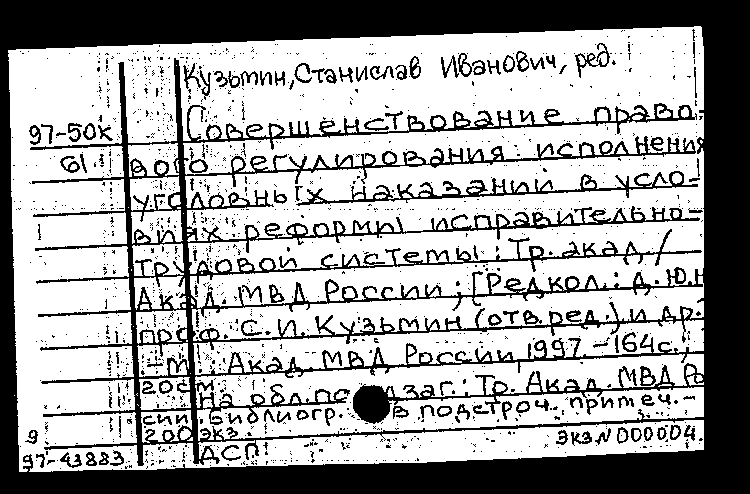 Кузьмин, Станислав Иванович, ред.
97-50к Совершенствование право-
61. вого регулирования исполнения
уголовных наказаний в усло-
виях реформы исправительно-
трудовой системы: Тр. акад. /
Акад. МВД России; [Редкол.: д.ю.н
проф. С.И. Кузьмин (отв. ред.) и др.]
-М.: Акад. МВД России, 1997.-164с.;
20см
На обл. подзаг.: Тр. Акад. МВД Ро
сии. Библиогр. в подстроч. примеч.-
9 200 экз. Экз N 000004.
97-43883 ДСП